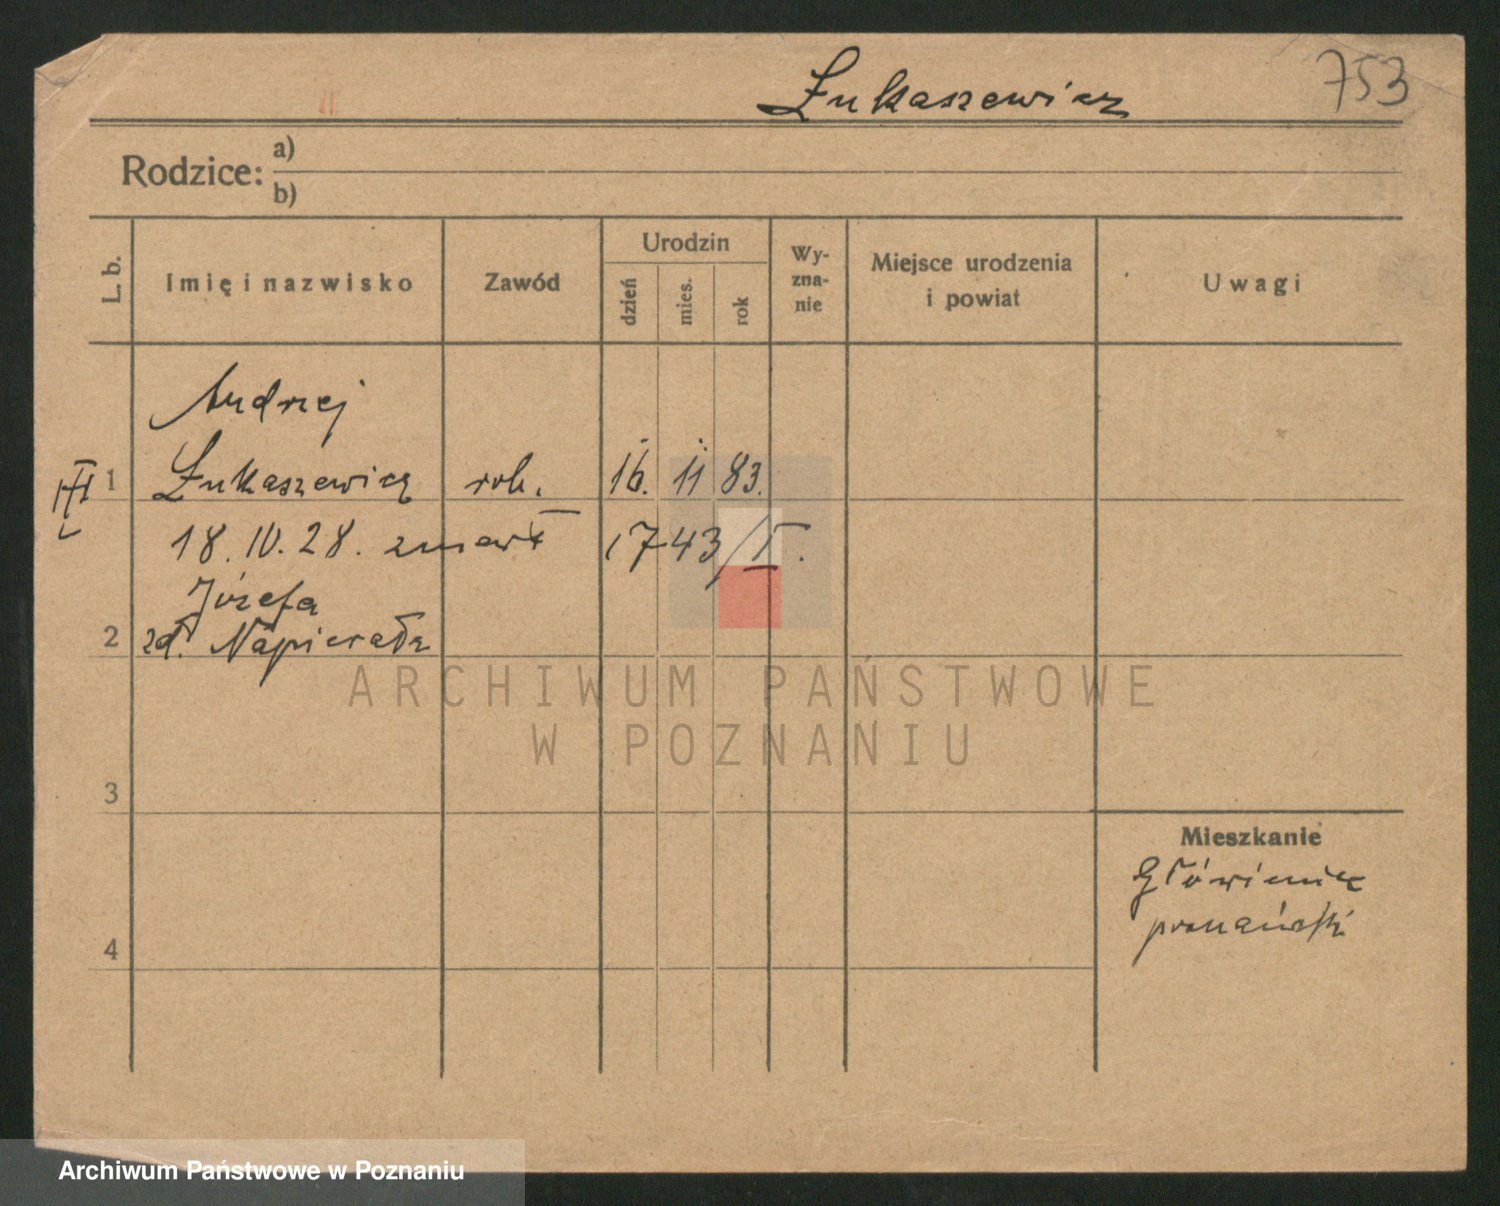 Łukaszewicz
753
Rodzice:
a)
b)
L. b.
Imię i nazwisko
Zawód
Urodzin
dzień
mies.
rok
Wy-
zna-
nie
Miejsce urodzenia
i powiat
Uwagi
Andrzej
III
1
Łukaszewicz rob. 16. 11 83.
18. IV. 28. zmarł 1743/I.
Józefa
2
zd. Napierała
ARCHIWUM PAŃSTWOWE
W POZNANIU
3
Mieszkanie
4
Archiwum Państwowe w Poznaniu